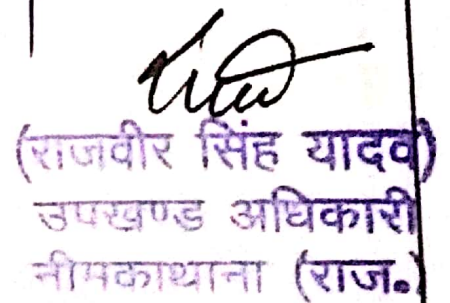 (राजवीर सिंह यादव)
उपखण्ड अधिकारी
नीमकाथाना (राज॰)